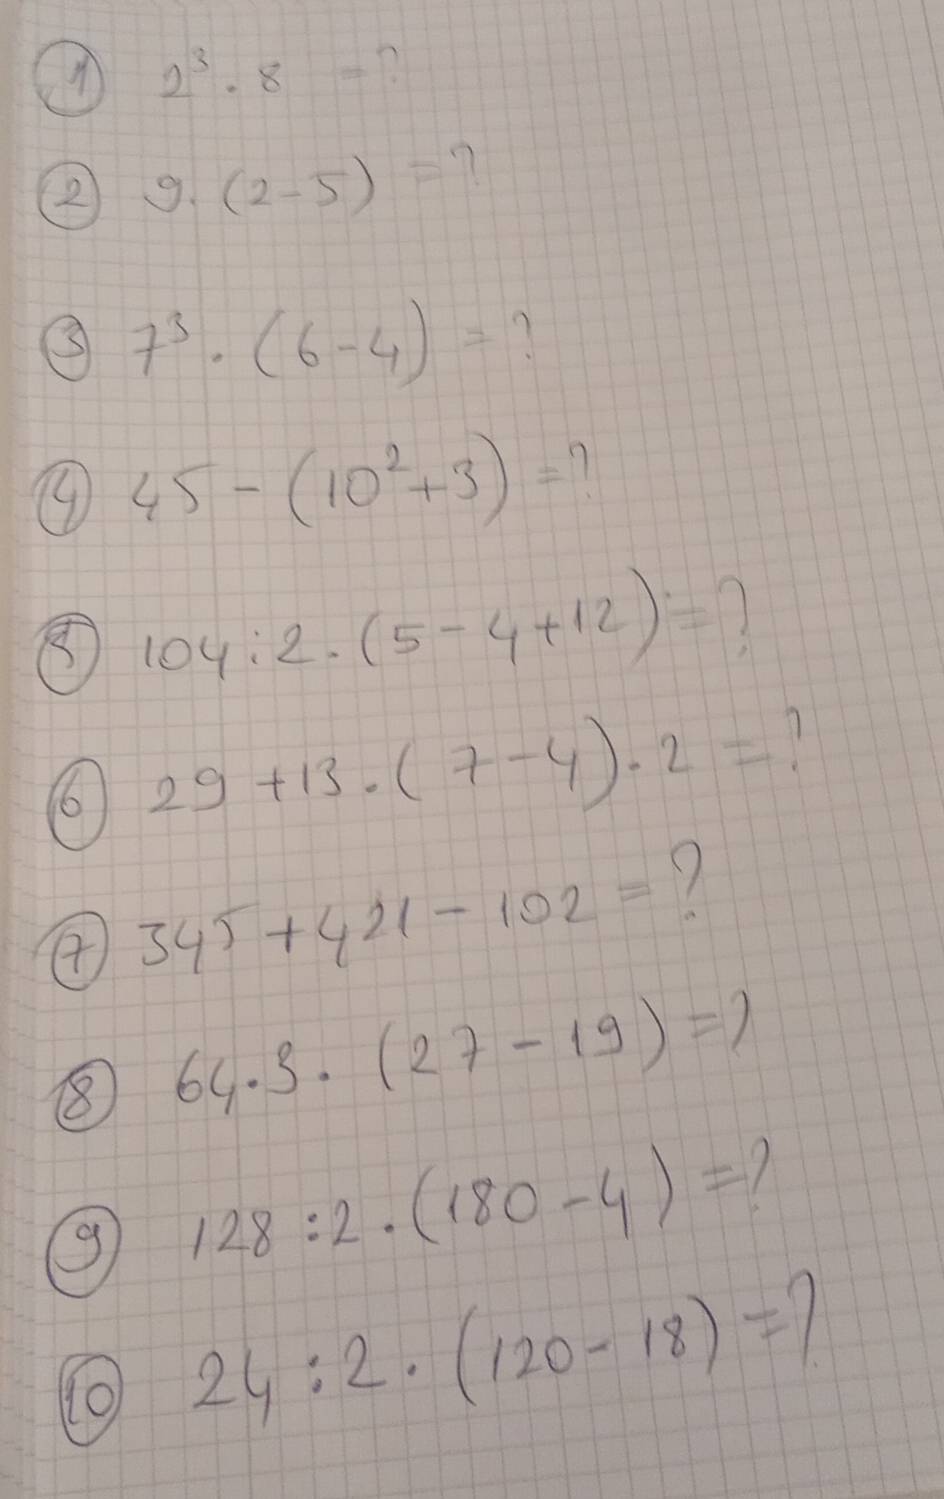 ① 2³ · 8 = ?
② 9 · (2 - 5) = ?
③ 7³ · (6 - 4) = ?
④ 45 - (10² + 3) = ?
⑤ 104 : 2 · (5 - 4 + 12) = ?
⑥ 29 + 13 · (7 - 4) · 2 = ?
⑦ 345 + 421 - 102 = ?
⑧ 64 · 3 · (27 - 19) = ?
⑨ 128 : 2 · (180 - 4) = ?
⑩ 24 : 2 · (120 - 18) = ?